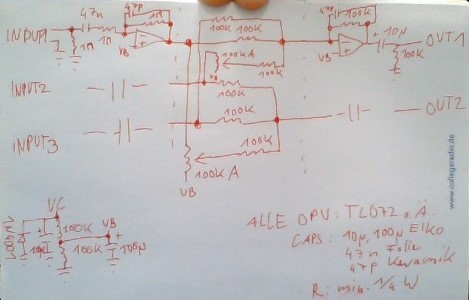 47n
47P
1M
INPUT1
1M
1M
VB
100K 100K
47P
100K
10µ
OUT1
VB
100K
100KA
100K
INPUT2
VB
100K
100K
OUT2
INPUT3
100K
100KA
VB
VC
100K
VB
100K
100µ
ALLE OPV: TL072 o.Ä.
CAPS: 10µ, 100µ Elko
47n Folie
47P Keramik
R: min. 1/4 W
www.collegeradio.de